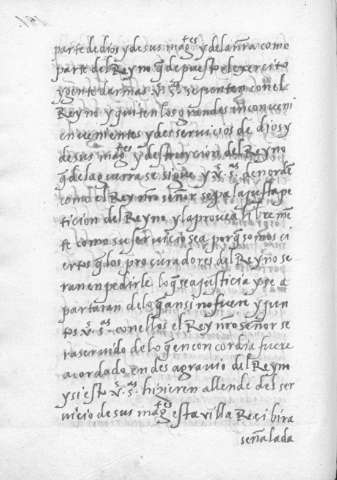 parte de dios y de sus mag.tes y de la nra como
parte del Reyno q̃ depuesto el exercito
y gente de armas v.as s.as se ponten con el
Reyno y quiten los grandes inconveni
en venientes y de servicios de dios y
de sus mag.tes y destruycion del Reyno
q̃ de la guerra se sigue y v.as s.as den orden
como el Rey nro señor sepa la justa pe
ticion del Reyno y la provea libreme
te como su servicio sea porq̃ somos ci
ertos q̃ los procuradores del Reyno se
ran en pedirle lo q̃ sea justicia y se a
partaran de lo q̃ ansi no fuere y jun
tos v.as s.as con ellos el Rey nro señor se
ra servido de lo q̃ en concordia fuere
acordado en desagravio del Reyno
y si esto v.as s.as hizieren allende del ser
vicio de sus mag.tes esta villa Recibira
señalada